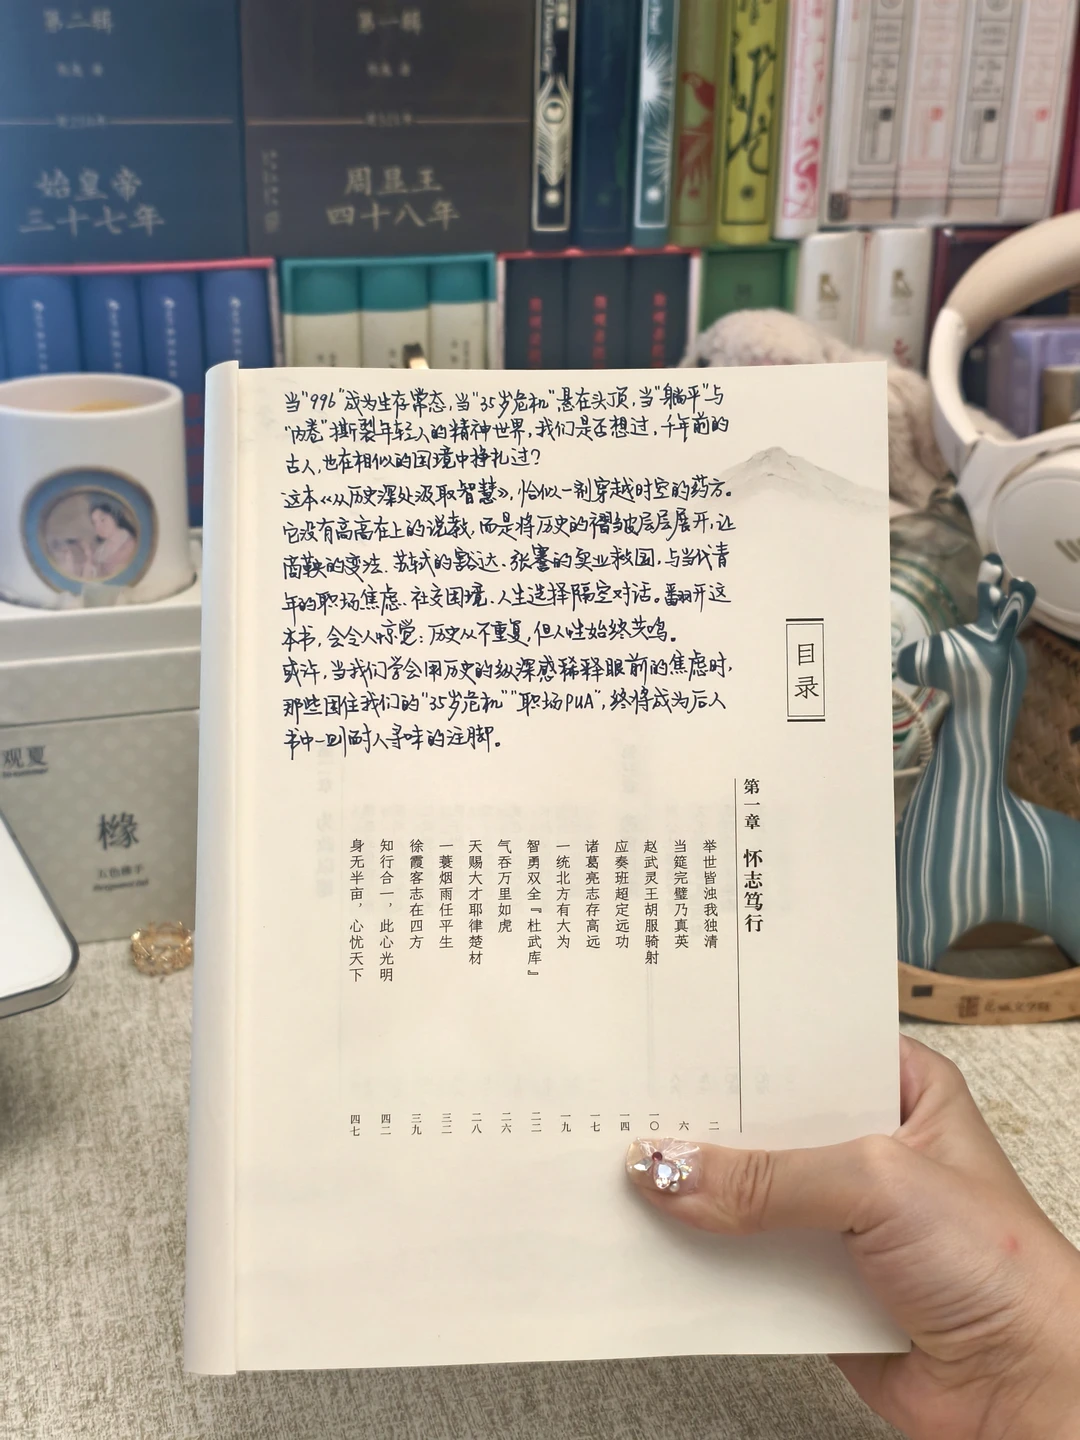 第二辑
第一辑
始皇帝
三十七年
周显王
四十八年
当“996”成为生存常态，当“35岁危机”悬在头顶，当“躺平”与
“内卷”撕裂年轻人的精神世界，我们是否想过，千年前的
古人，也在相似的困境中挣扎过？
这本《从历史深处汲取智慧》，恰似一剂穿越时空的药方。
它没有高高在上的说教，而是将历史的褶皱层层展开，让
商鞅的变法、苏轼的豁达、张謇的实业救国，与当代青
年的职场焦虑、社交困境、人生选择隔空对话。翻开这
本书，会令人惊觉：历史从不重复，但人性始终共鸣。
或许，当我们学会用历史的纵深感稀释眼前的焦虑时，
那些困住我们的“35岁危机”“职场PUA”，终将成为后人
书中一则耐人寻味的注脚。
目录
第一章 怀志笃行
举世皆浊我独清 二
当筵完璧乃真英 六
赵武灵王胡服骑射 一〇
应奏班超定远功 一四
诸葛亮志存高远 一七
一统北方有大为 一九
智勇双全『杜武库』 二二
气吞万里如虎 二六
天赐大才耶律楚材 二八
一蓑烟雨任平生 三二
徐霞客志在四方 三九
知行合一，此心光明 四二
身无半亩，心忧天下 四七
观夏
橼
五色佛手